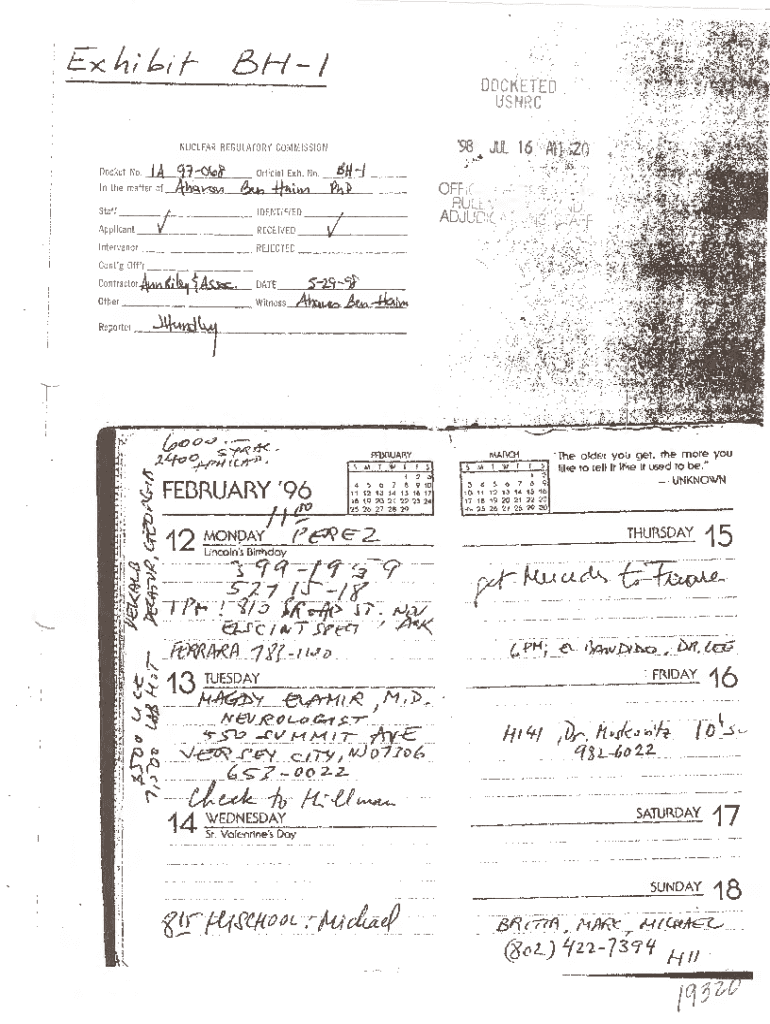 Exhibit BH-1
DOCKETED
USNRC
'98 JUL 16 A11:20
OFFIC
RULE
ADJUDIC
NUCLEAR REGULATORY COMMISSION
Docket No. IA 97-068 Official Exh. No. BH-1
In the matter of Aharon Ben Haim PhD
Staff IDENTIFIED ✓
Applicant ✓ RECEIVED ✓
Intervenor REJECTED
Cont'g Off'r
Contractor Ann Riley & Assoc. DATE 5-29-98
Other Witness Aharon Ben-Haim
Reporter
6000
2400
FEBRUARY '96
FEBRUARY
S M T W T F S
1 2 3
4 5 6 7 8 9 10
11 12 13 14 15 16 17
18 19 20 21 22 23 24
25 26 27 28 29
MARCH
S M T W T F S
1 2
3 4 5 6 7 8 9
10 11 12 13 14 15 16
17 18 19 20 21 22 23
24 25 26 27 28 29 30
"The older you get, the more you
like to tell it like it used to be."
- UNKNOWN
DEKALB
DECATUR, GEORGIA
7,500 LAB HOT
11:00
12 MONDAY PEREZ
Lincoln's Birthday
399-1959
527 15-18
1PM! 810 BROAD ST.
ELSCINT SPECT
FERRARA 783-1100
13 TUESDAY
MAGDY ELAMIR, M.D.
NEUROLOGIST
550 SUMMIT AVE
JERSEY CITY, NJ 07306
653-0022
Check to Hillman
14 WEDNESDAY
St. Valentine's Day
815 HISCHOOL: Michael
THURSDAY 15
get to
6PM; EL BANDIDO, DR. LEE
FRIDAY 16
H141, Dr. Moskovitz 10's
982-6022
SATURDAY 17
SUNDAY 18
BRITTA, MARK, MICHAEL
(802) 422-7394 H11
19320